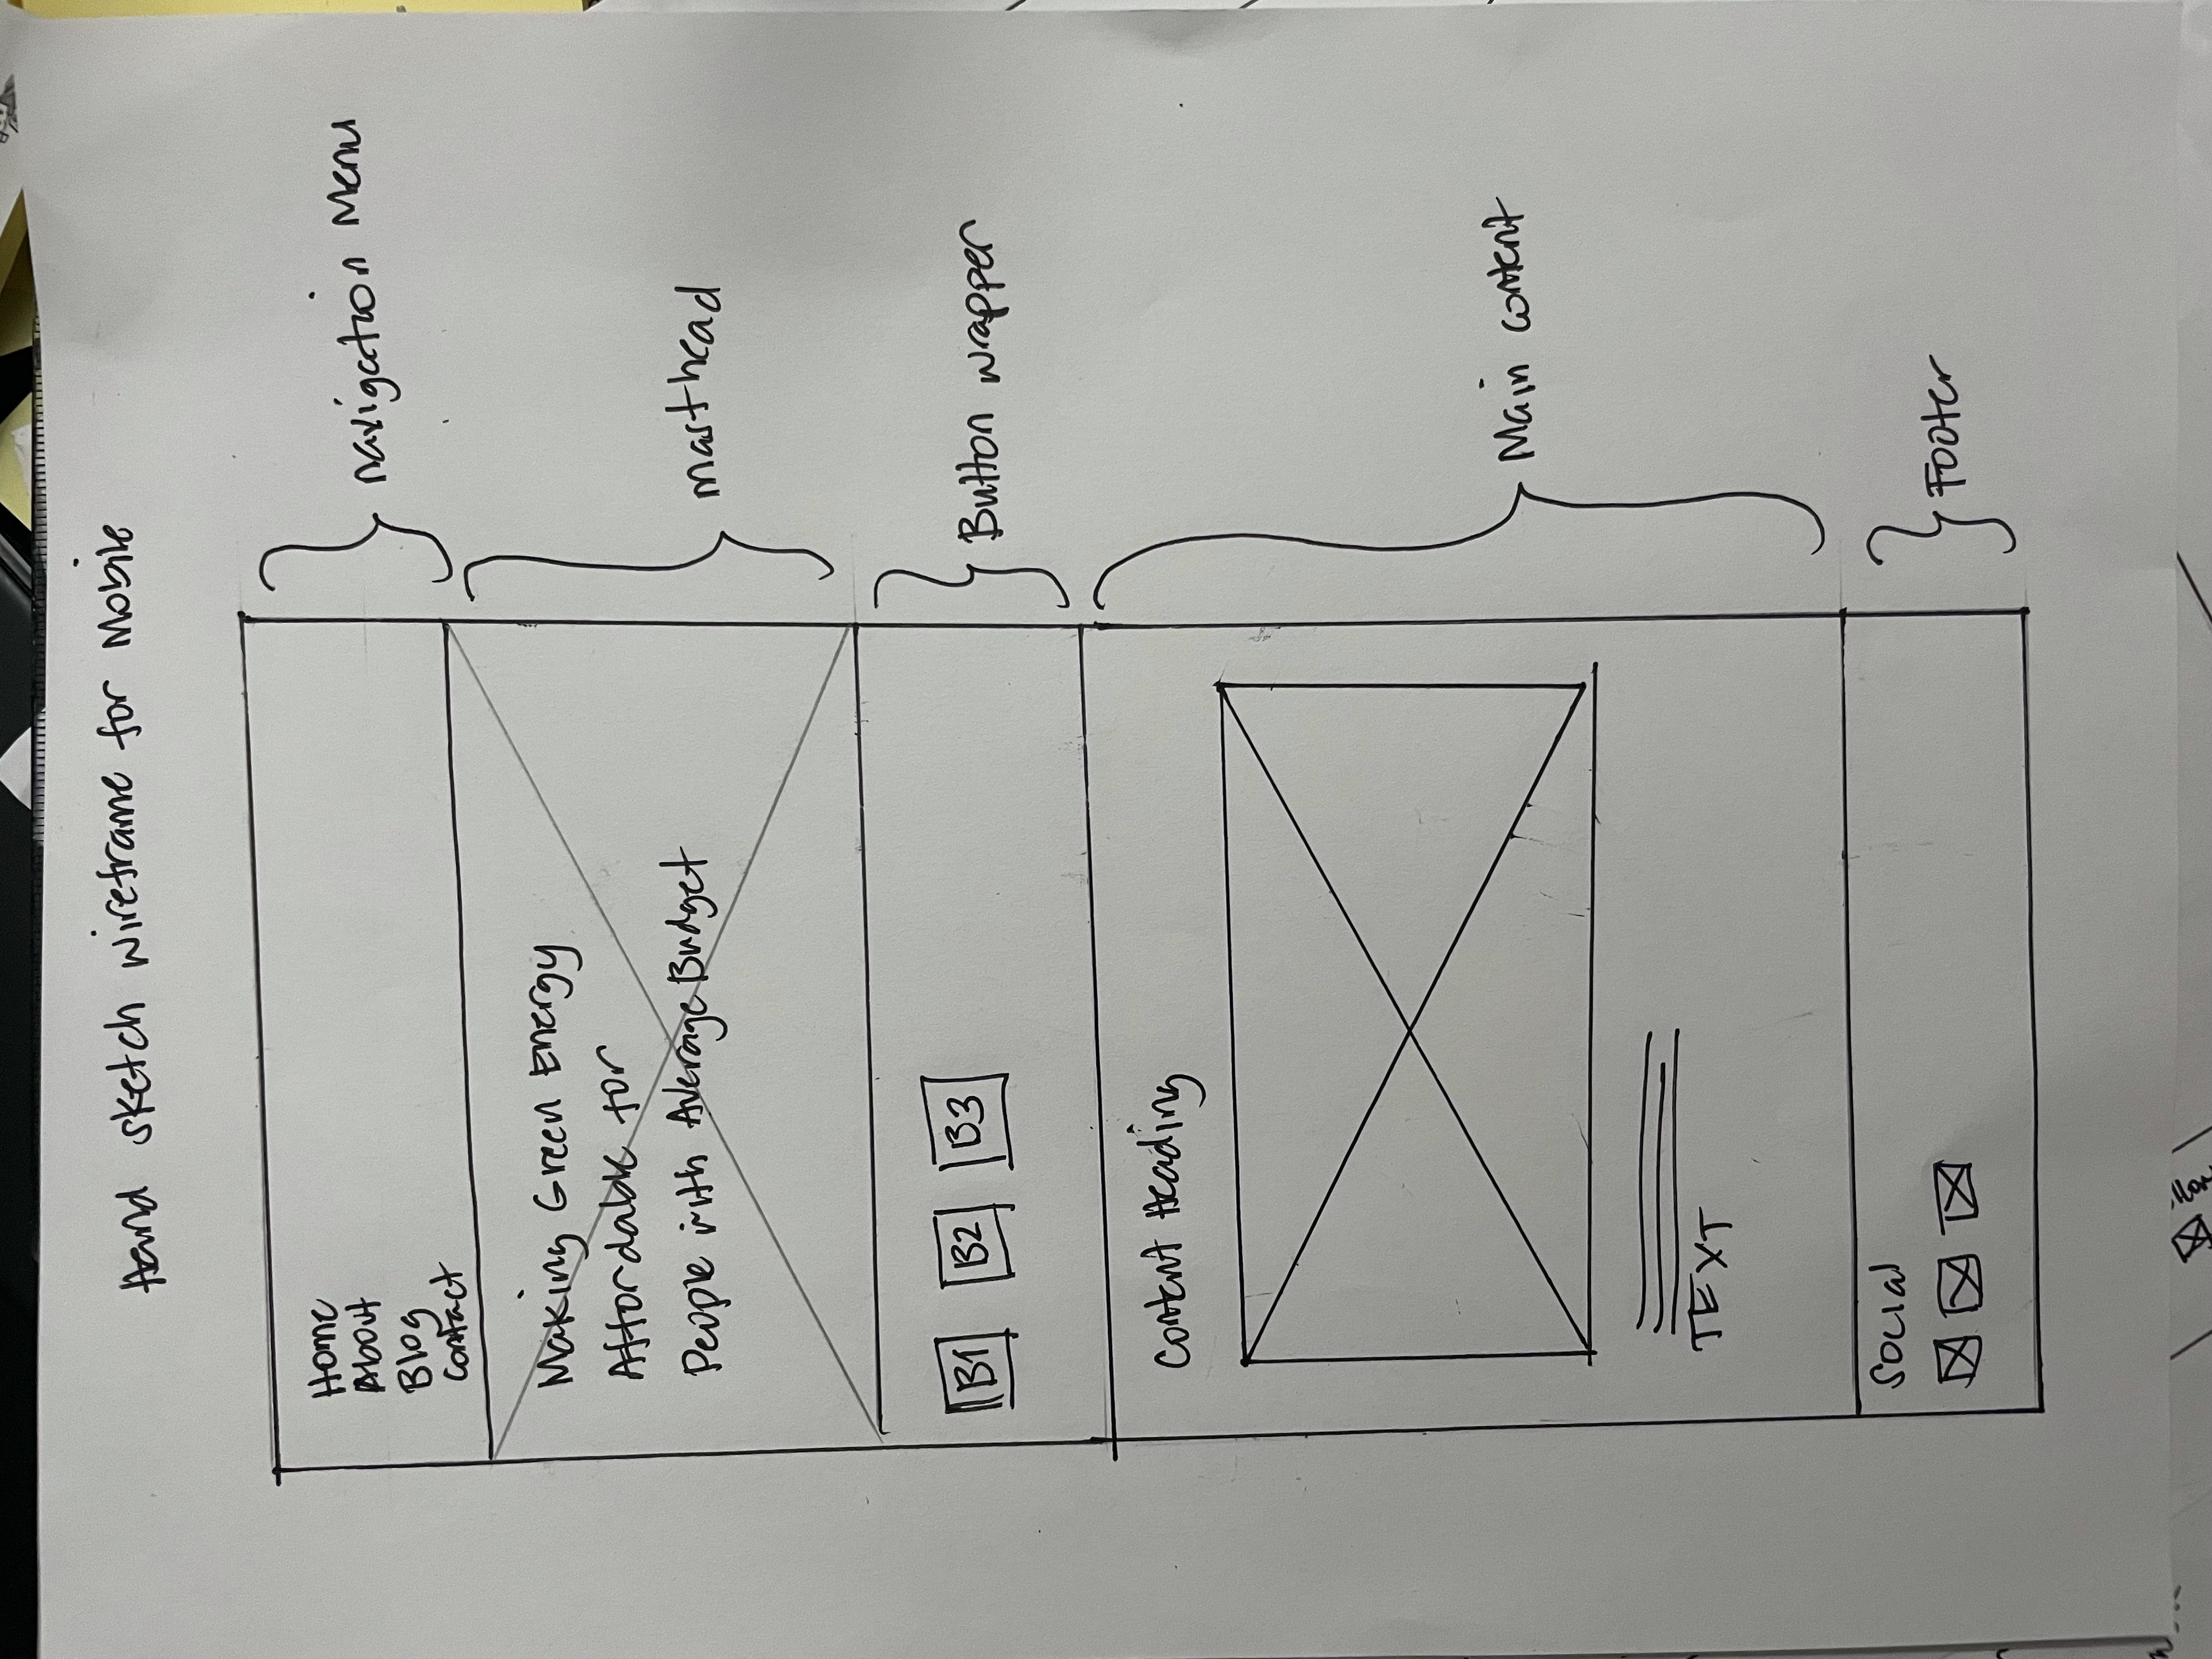 Hand sketch wireframe for Mobile
Home
About
Blog
Contact
navigation Menu
Making Green Energy
Affordable for
People with Average Budget
masthead
B1 B2 B3
Button wrapper
Content Heading
TEXT
Main content
Social
Footer